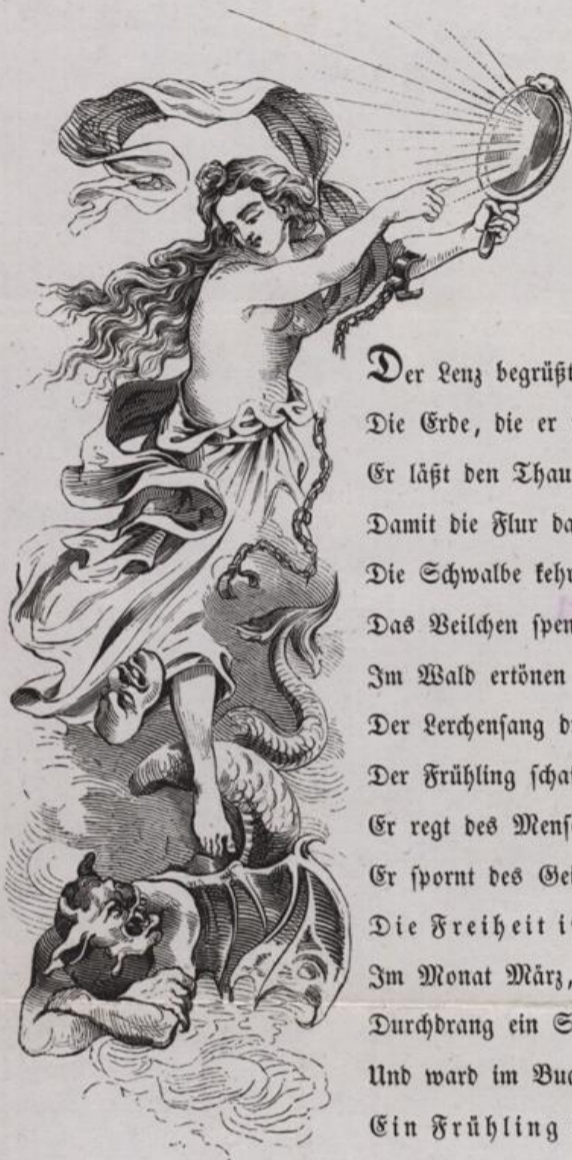 Der Lenz begrüßt
Die Erde, die er
Er läßt den Thau
Damit die Flur
Die Schwalbe
Das Veilchen
Im Wald ertönen
Der Lerchensang
Der Frühling
Er regt des
Er spornt des
Die Freiheit
Im Monat März,
Durchdrang ein
Und ward im
Ein Frühling